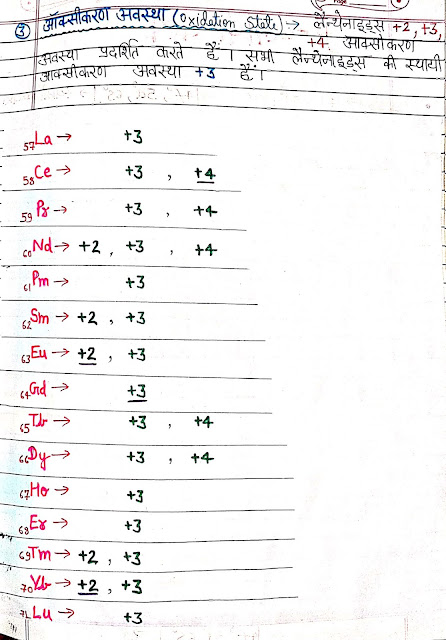 ③ ऑक्सीकरण अवस्था (Oxidation State) → लैन्थेनाइड्स +2, +3,
+4 आक्सीकरण
अवस्था प्रदर्शित करते हैं। सभी लैन्थेनाइड्स की स्थायी
आक्सीकरण अवस्था +3 हैं।
57La → +3
58Ce → +3 , +4
59Pr → +3 , +4
60Nd → +2 , +3 , +4
61Pm → +3
62Sm → +2 , +3
63Eu → +2 , +3
64Gd → +3
65Tb → +3 , +4
66Dy → +3 , +4
67Ho → +3
68Er → +3
69Tm → +2 , +3
70Yb → +2 , +3
71Lu → +3